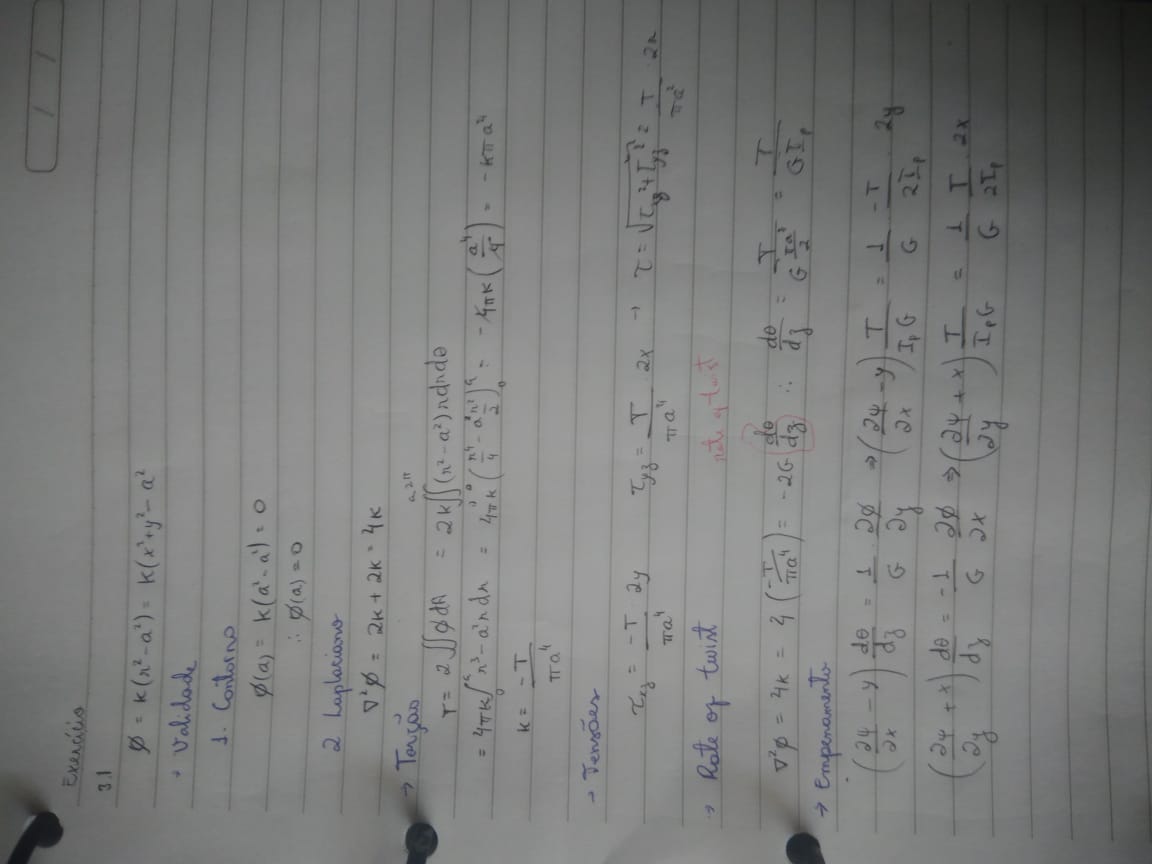 Exercício
3.1
ø = k(r² - a²) = k(x² + y² - a²)
→ Validade
1. Contorno
ø(a) = k(a² - a²) = 0
∴ ø(a) = 0
2 Laplaciano
∇²ø = 2k + 2k = 4k
→ Torção
T = 2∬ødA = 2k ∫₀ᵃ∫₀²π (r² - a²) r dr dθ
= 4πk ∫₀ᵃ r³ - a²r dr = 4πk (r⁴/4 - a²r²/2)₀ᵃ = -4πk (a⁴/4) = -kπa⁴
k = -T/πa⁴
→ Tensões
τxz = -T/πa⁴ 2y τyz = T/πa⁴ 2x → τ = √(τxz² + τyz²) = T/πa² 2r
→ Rate of twist
rate of twist
∇²ø = 4k = 4(-T/πa⁴) = -2G(dθ/dz) ∴ dθ/dz = T/(G πa⁴/2) = T/GIp
→ Empenamento
(∂ψ/∂x - y) dθ/dz = 1/G ∂ø/∂y ⇒ (∂ψ/∂x - y) T/IpG = 1/G -T/2Ip 2y
(∂ψ/∂y + x) dθ/dz = -1/G ∂ø/∂x ⇒ (∂ψ/∂y + x) T/IpG = 1/G T/2Ip 2x